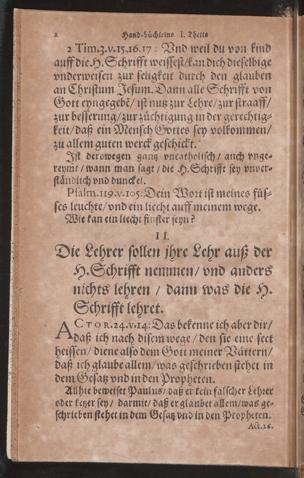 2 Hand-büchleins I. Theils
2 Tim.3.v.15.16.17: Vnd weil du von kind
auff die H.Schrifft weissest/kan dich dieselbige
vnderweisen zur seligkeit durch den glauben
an Christum Jesum. Dann alle Schrifft von
Gott eyngegebẽ/ist nutz zur Lehre/zur straaff/
zur besserung/zur züchtigung in der gerechtig-
keit/daß ein Mensch Gottes sey volkommen/
zu allem guten werck geschickt.
Ist derowegen gantz vncatholisch/ auch vnge-
reymt/ wann man sagt/ die H. Schrifft sey vnver-
ständlich vnd dunckel.
Psalm.119.v.105: Dein Wort ist meines füs-
ses leuchte/vnd ein liecht auff meinem wege.
Wie kan ein liecht finster seyn?
II.
Die Lehrer sollen jhre Lehr auß der
H.Schrifft nemmen/vnd anders
nichts lehren / dann was die H.
Schrifft lehret.
ACTOR.24.v.14: Das bekenne ich aber dir/
daß ich nach disem wege / den sie eine sect
heissen/diene also dem Gott meiner Vättern/
daß ich glaube allem/was geschrieben stehet in
dem Gesatz vnd in den Propheten.
Allhie beweiset Paulus/daß er kein falscher Lehrer
oder ketzer sey/ darmit/ daß er glaubet allem/was ge-
schrieben stehet in dem Gesatz vnd in den Propheten.
Act.26.